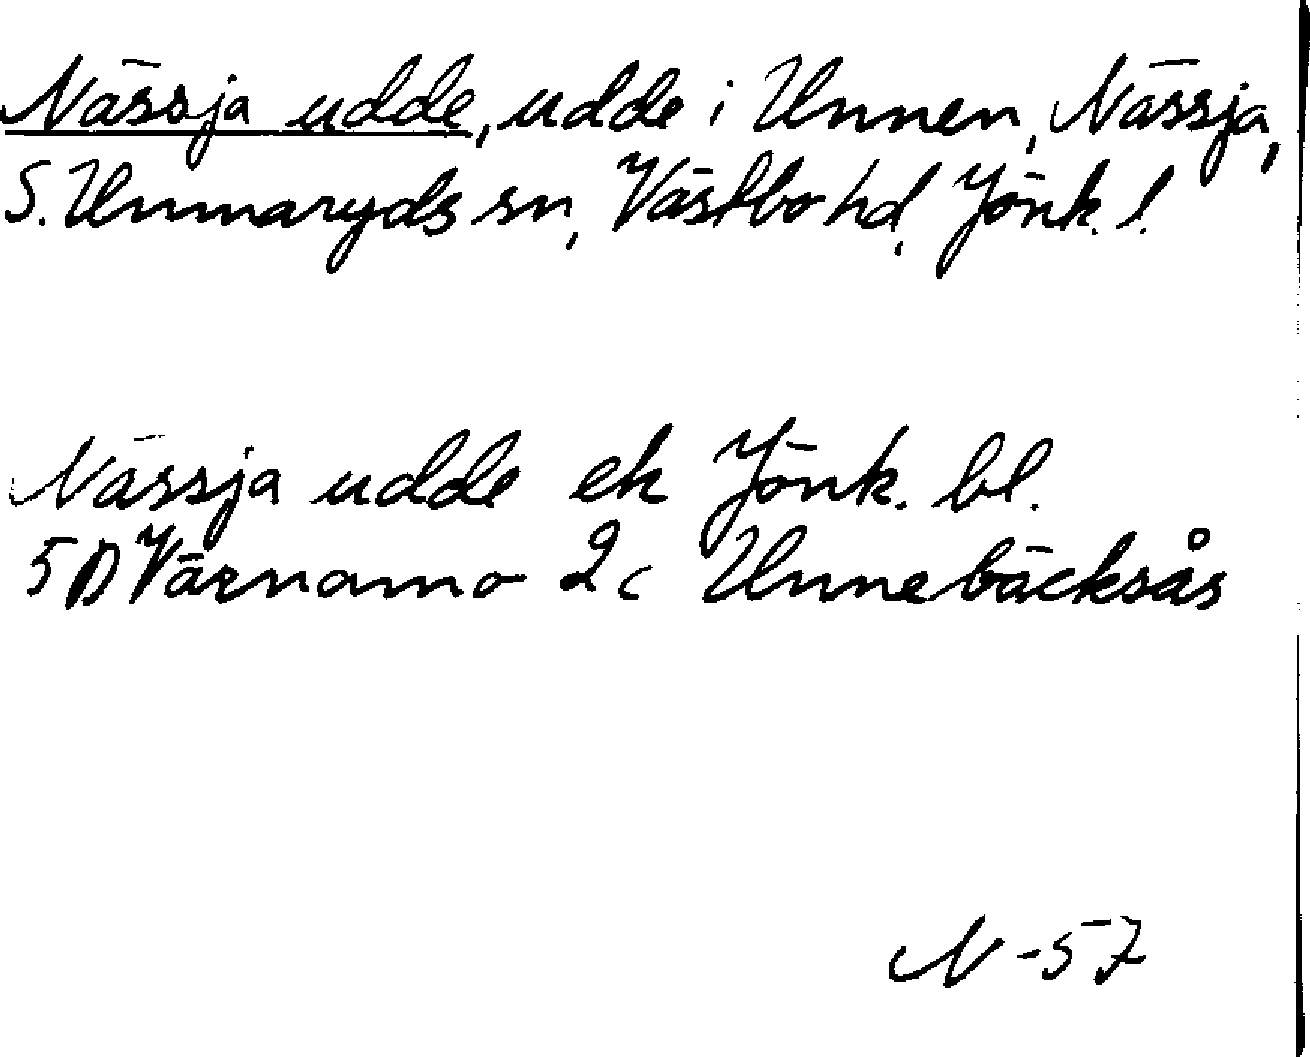 Nässja udde, udde i Unnen, Nässja,
S. Unnaryds sn, Västbo hd, Jönk. l.
Nässja udde ek Jönk. bl.
5D Värnamo 2c Unnebäcksås
N -57